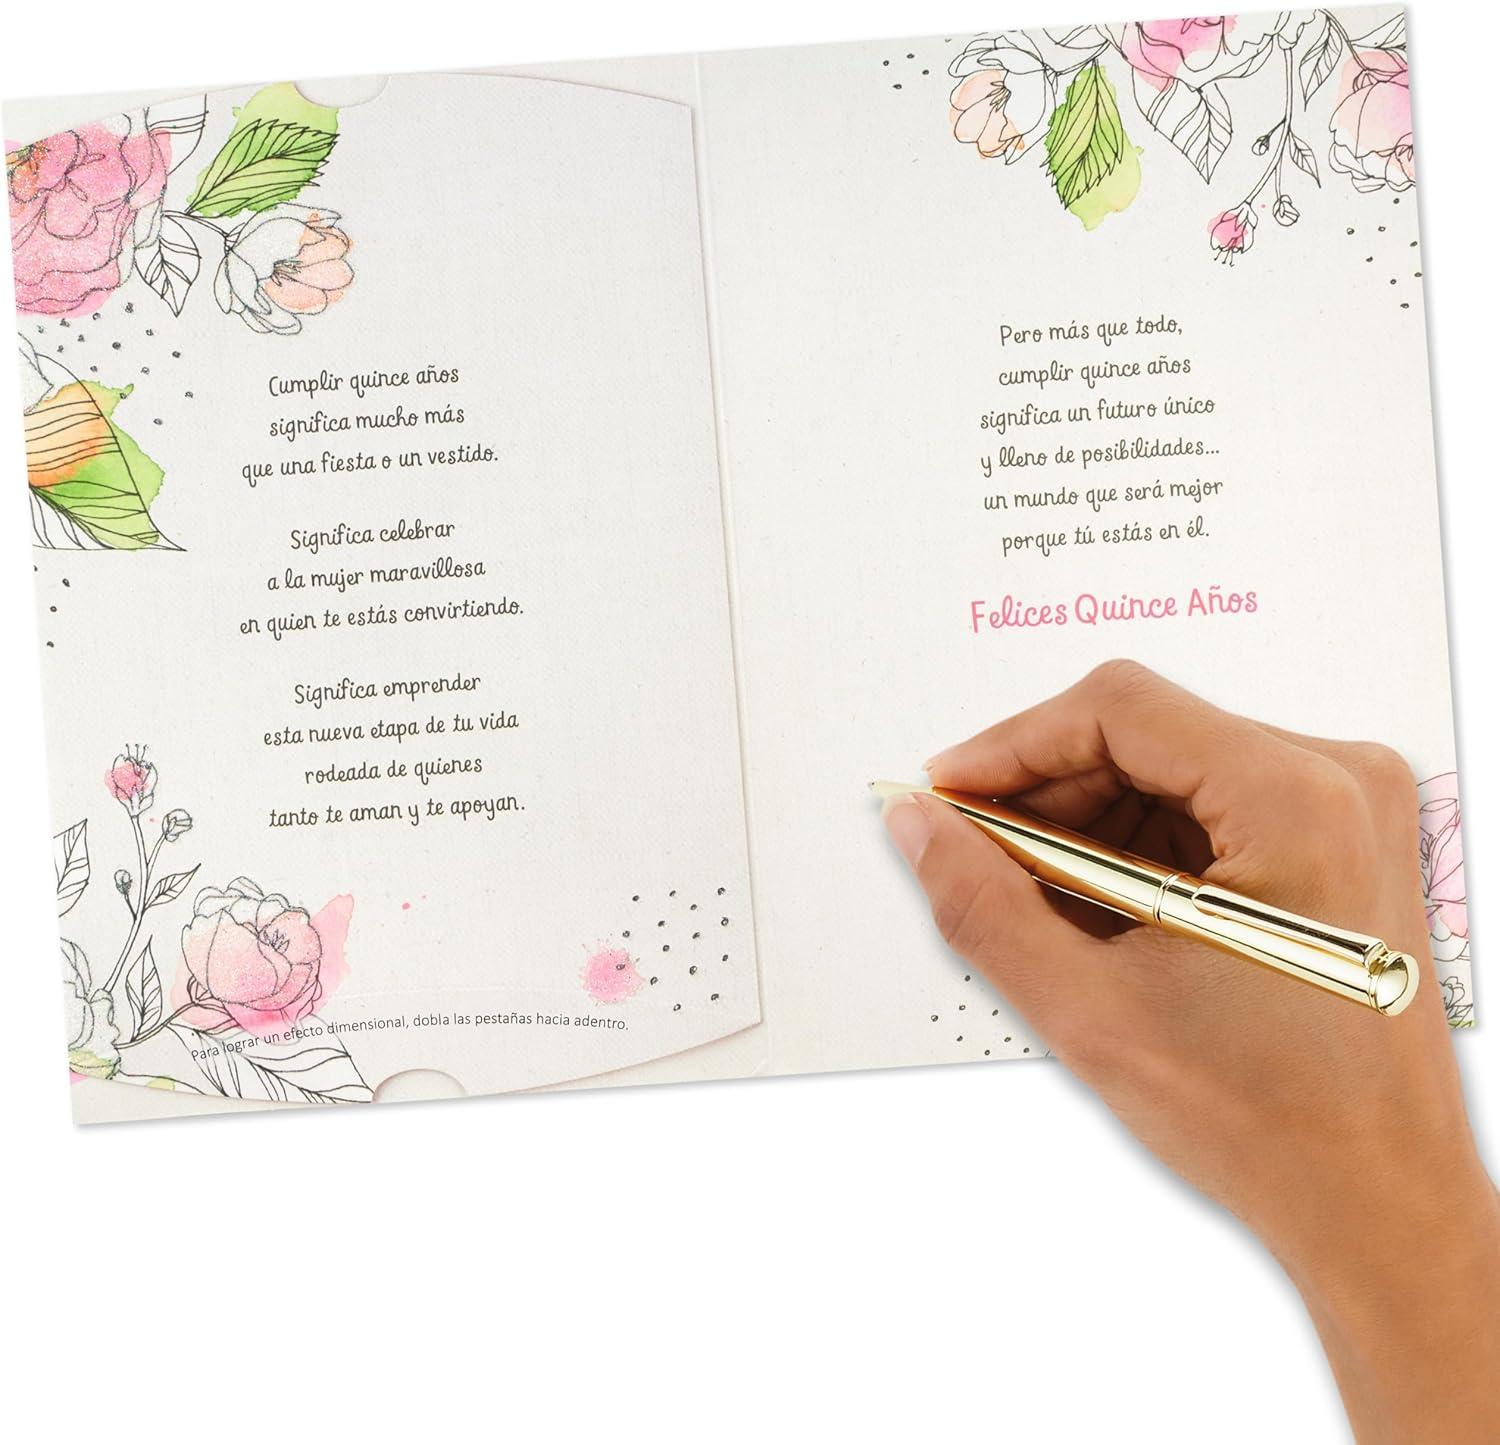 Cumplir quince años
significa mucho más
que una fiesta o un vestido.
Significa celebrar
a la mujer maravillosa
en quien te estás convirtiendo.
Significa emprender
esta nueva etapa de tu vida
rodeada de quienes
tanto te aman y te apoyan.
Para lograr un efecto dimensional, dobla las pestañas hacia adentro.
Pero más que todo,
cumplir quince años
significa un futuro único
y lleno de posibilidades...
un mundo que será mejor
porque tú estás en él.
Felices Quince Años